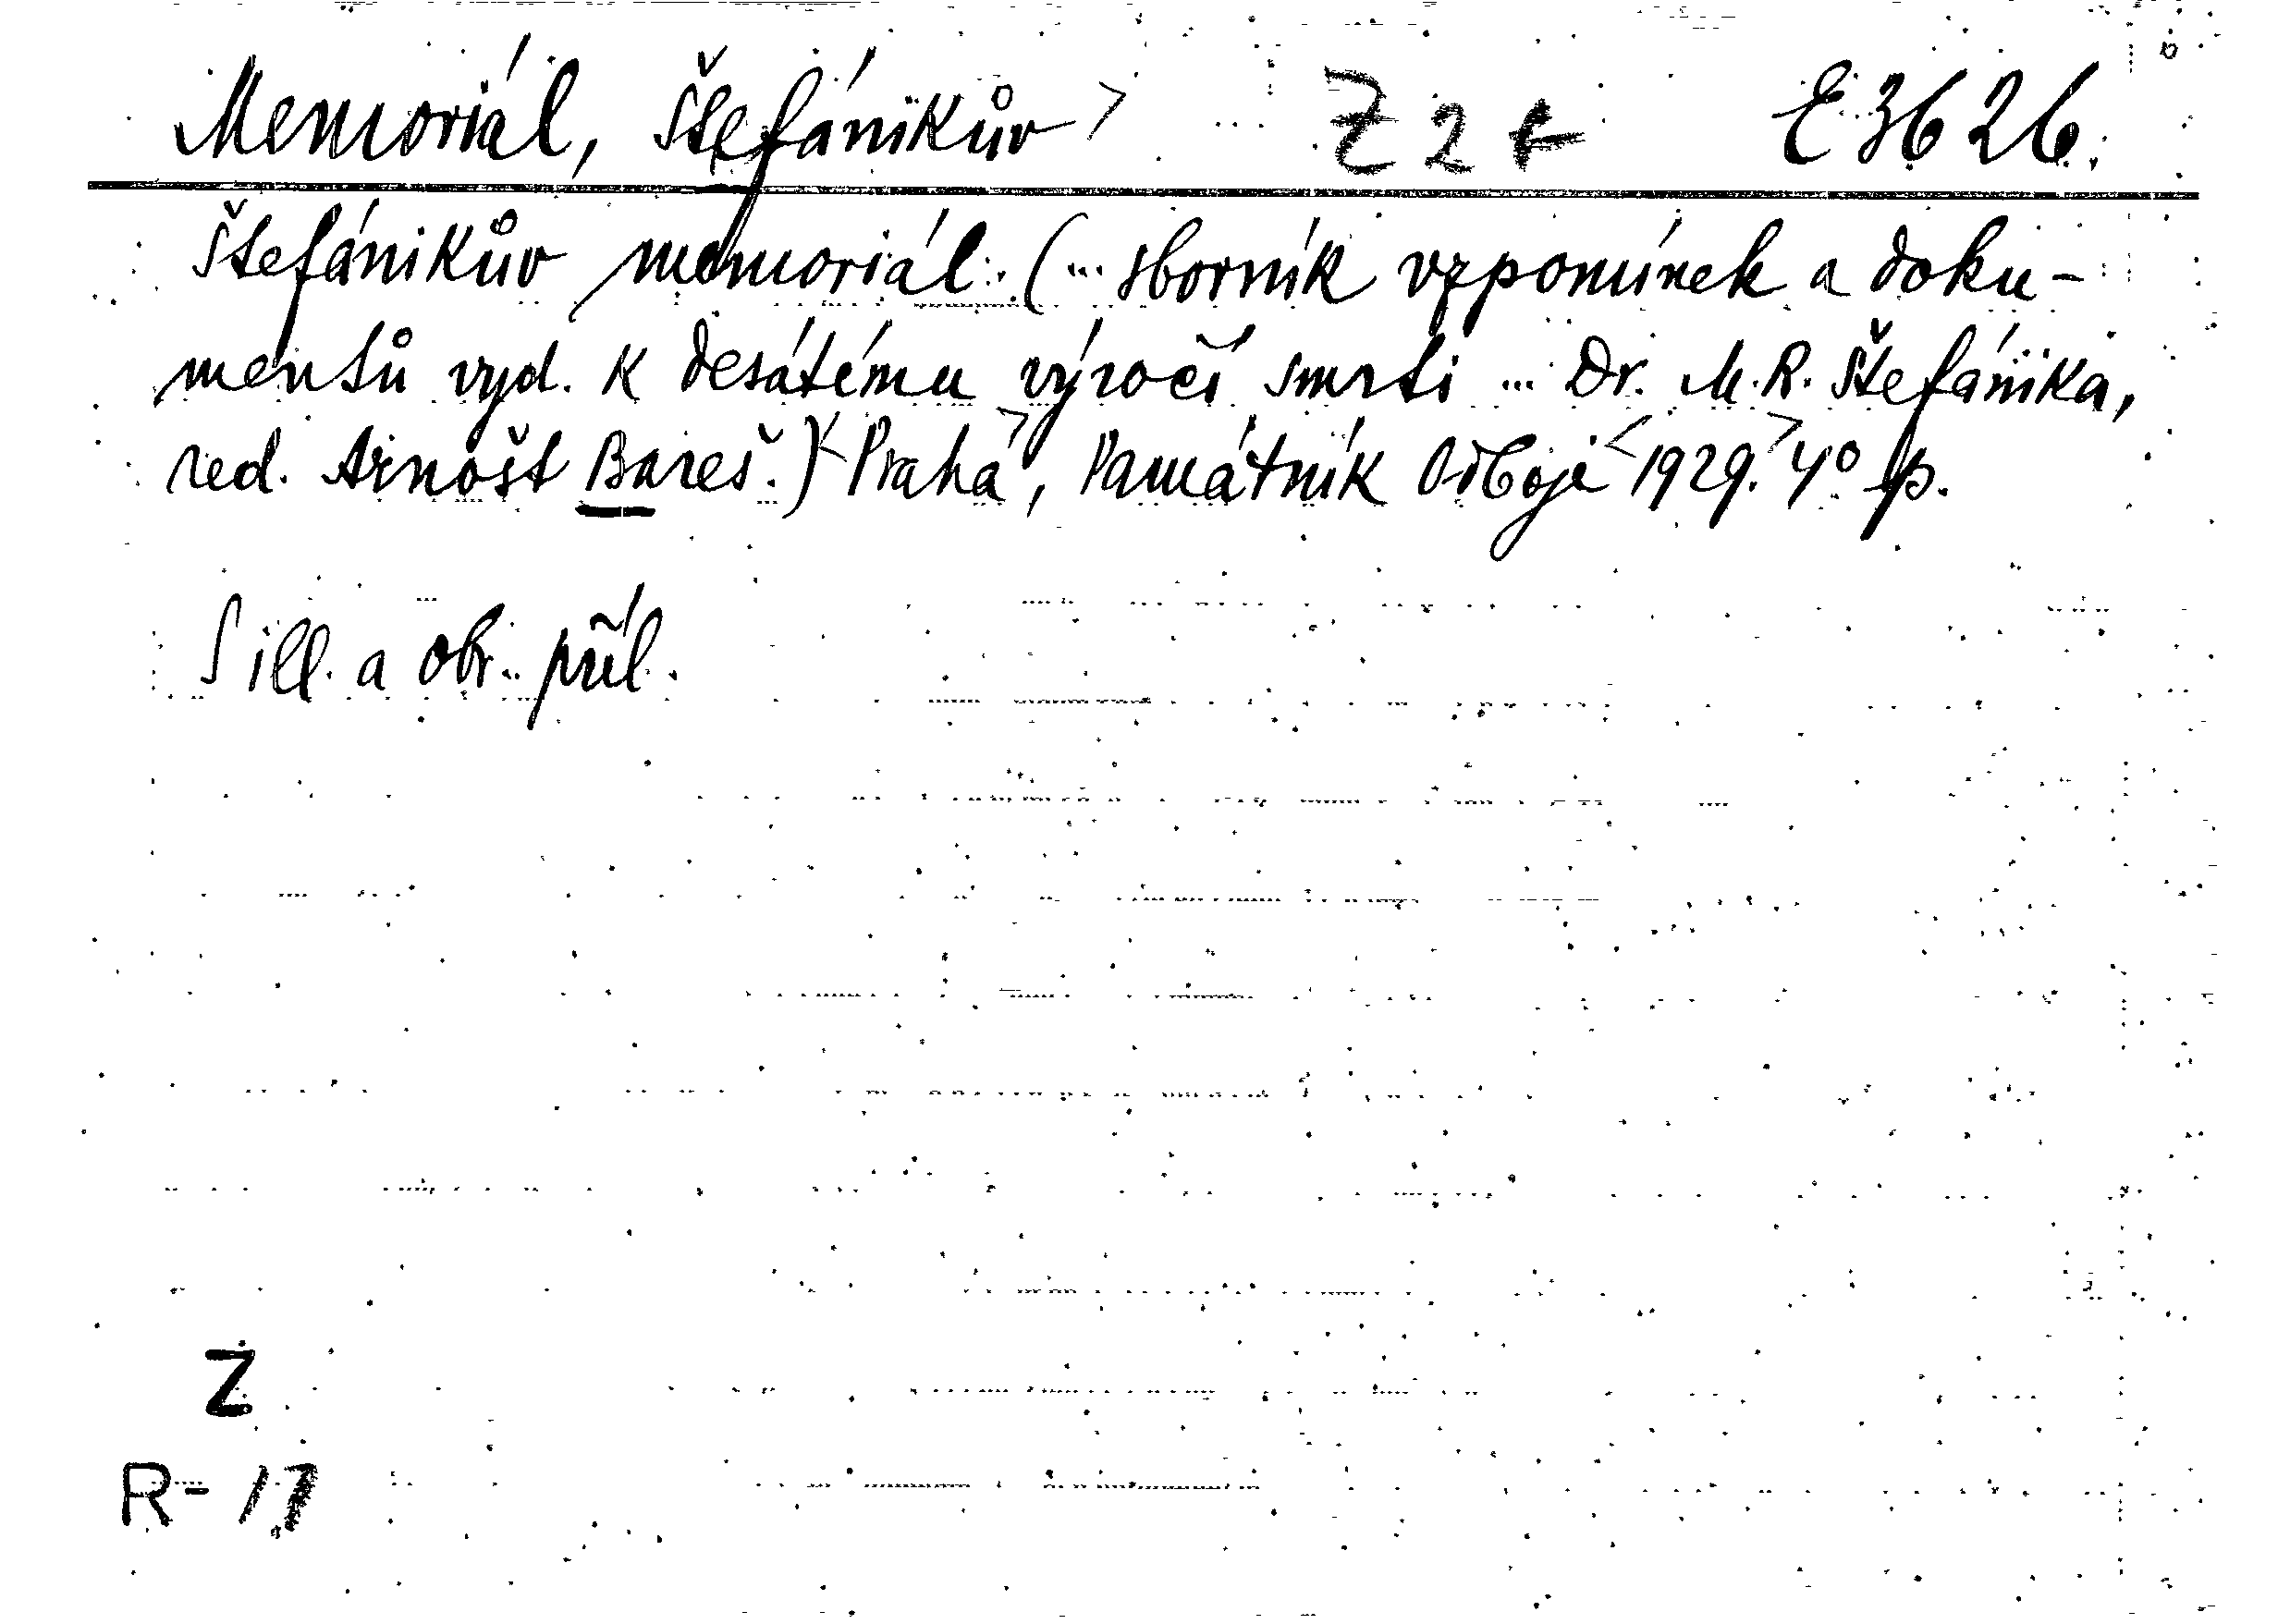 Memoriál, Štefánikův > Z 2 E 3626.
Štefánikův memoriál. (... sborník vzpomínek a doku-
mentů vyd. k desátému výročí smrti ... Dr. M. R. Štefánika,
red. Arnošt Bareš.) < Praha >, Památník Odboje < 1929. > 4°
S ill. a obr. příl.
Z
R- 17